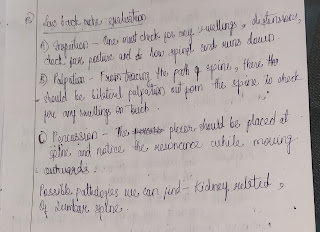 ② Low back ache - evaluation
A) Inspection - One must check for any swellings, distensions,
check for posture and do how spinal cord runs down.
B) Palpation - From tracing the path of spine, there
should be bilateral palpation from the spine to check
for any swellings on touch.
C) Percussion - The plexer should be placed at
spine and notice the resonance while moving
outwards.
Possible pathologies we can find - Kidney related,
Of Lumbar spine.